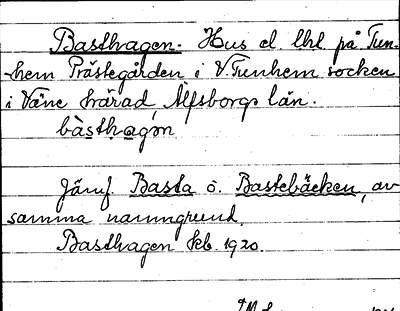 Basthagen. Hus el. lht på Tun-
-hem Prästegården i V. Tunhem socken
i Väne härad, Älfsborgs län.
bàsthagən
Jämf. Basta o. Bastebäcken, av
samma namngrund.
Basthagen kb. 1920.